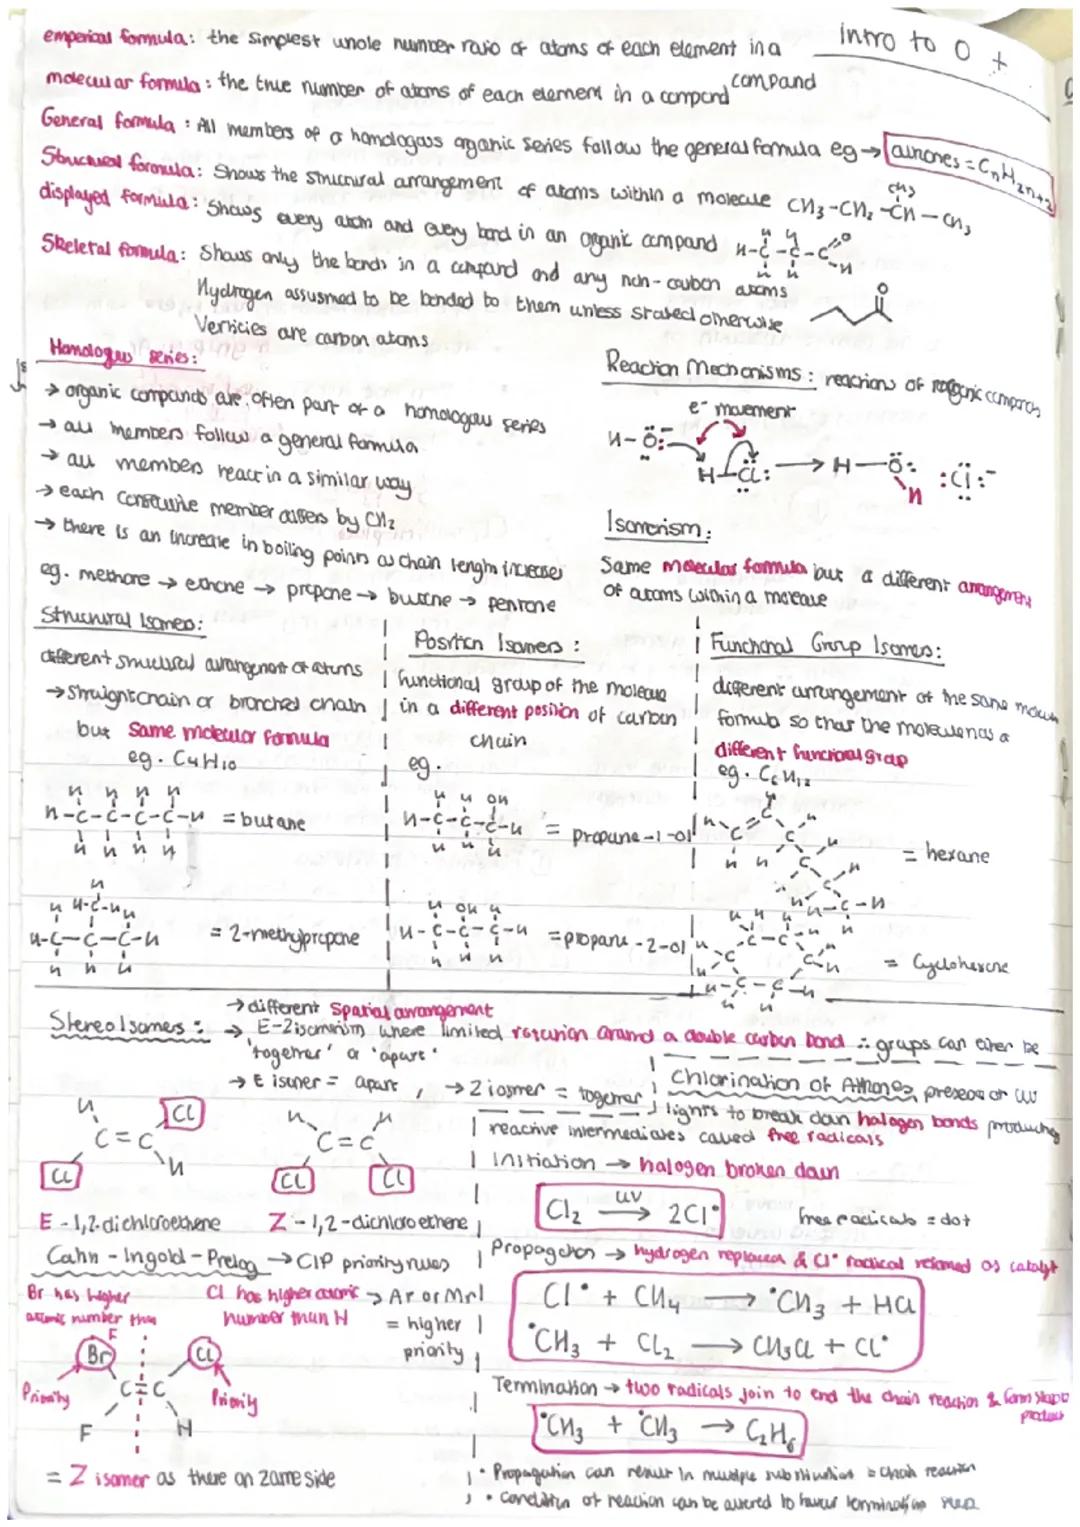 intro to O +
emperical formula: the simplest whole number ratio of atoms of each element in a compound
molecular formula: the true number of atoms of each element in a compound
General formula: All members of a homologous organic series follow the general formula eg → alkanes = CnH2n+2
Structural formula: Shows the structural arrangement of atoms within a molecule CH3-CH2-CH-CH3
CH3
displayed formula: Shows every atom and every bond in an organic compound
Skeletal formula: Shows only the bonds in a compound and any non-carbon atoms
Hydrogen assumed to be bonded to them unless stated otherwise
Verticies are carbon atoms
Homologous series:
→ organic compounds are often part of a homologous series
→ all members follow a general formula
→ all members react in a similar way
→ each consecutive member differs by CH2
→ there is an increase in boiling points as chain length increases
eg. methane → ethane → propane → butane → pentane
Reaction Mechanisms: reactions of organic compounds
e- movement
H-Ö: H-Cl: → H-Ö: :Cl:-
H
Isomerism:
Same molecular formula but a different arrangement
of atoms within a molecule
Structural Isomers:
different structural arrangement of atoms
→ Straight chain or branched chain
but same molecular formula
eg. C4H10
H-C-C-C-C-H = butane
= 2-methylpropane
Position Isomers:
functional group of the molecule
in a different position of carbon
chain
eg.
= propane-1-ol
= propane-2-ol
Functional Group Isomers:
different arrangement of the same
formula so that the molecule has a
different functional group
eg. C6H12
= hexane
= Cyclohexane
Stereo Isomers:
→ different Spatial arrangement
→ E-Z isomerism where limited rotation around a double carbon bond ∴ groups can either be
'together' or 'apart'
→ E isomer = apart, → Z isomer = together
H Cl
C=C
Cl H
E-1,2-dichloroethene
H H
C=C
Cl Cl
Z-1,2-dichloroethene
Cahn-Ingold-Prelog → CIP priority rules
Br has higher
atomic number than
F
Cl has higher atomic
number than H
→ Ar or Mr
= higher
priority
Br Cl
Priority C=C Priority
F H
= Z isomer as there on same side
Chlorination of Alkanes presence of UV
lights to break down halogen bonds producing
reactive intermediates called free radicals
Initiation → halogen broken down
Cl2 UV→ 2Cl•
free radicals = dot
Propagation → hydrogen replaced & Cl• radical reformed as catalyst
Cl• + CH4 → •CH3 + HCl
•CH3 + Cl2 → CH3Cl + Cl•
Termination → two radicals join to end the chain reaction & form stable
product
•CH3 + •CH3 → C2H6
• Propagation can result in multiple substitution = chain reaction
• Condition of reaction can be altered to favour termination step